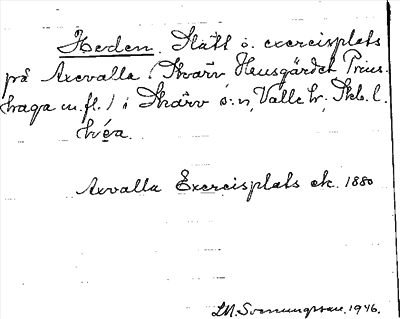 Heden. Slätt o. exercisplats
på Axevalla (Skärv, Husgärdet, Prins-
haga m.fl.) i Skärv s:n, Valle hr, Skb. l.
héa.
Axvalla Exercisplats ek. 1880
1946.